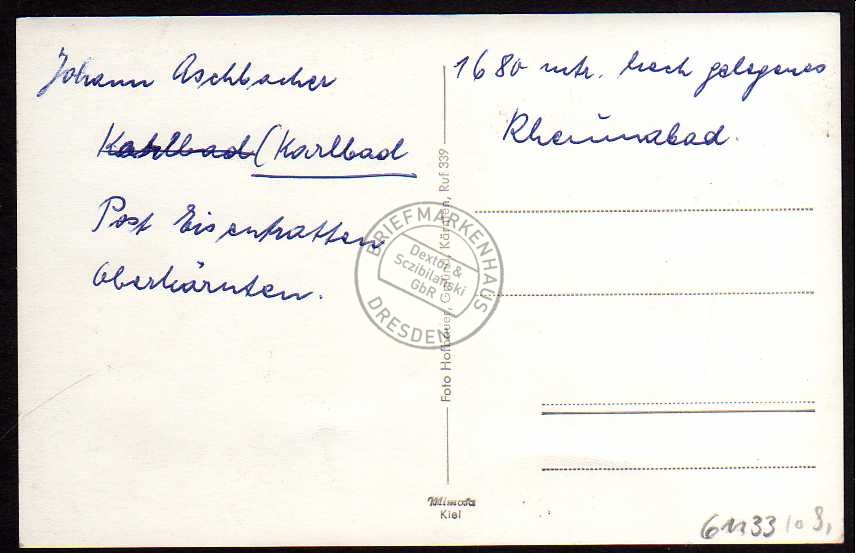 Johann Aschbacher
Kahlbad (Karlbad
Post Eisentratten
Oberkärnten.
1680 mtr. hoch gelegenes
Rheumabad.
Foto Hofbauer, Kärnten, Ruf 339
BRIEFMARKENHAUS
Dextor &
Sczibilanski
GbR
DRESDEN
Mimosa
Kiel
61133